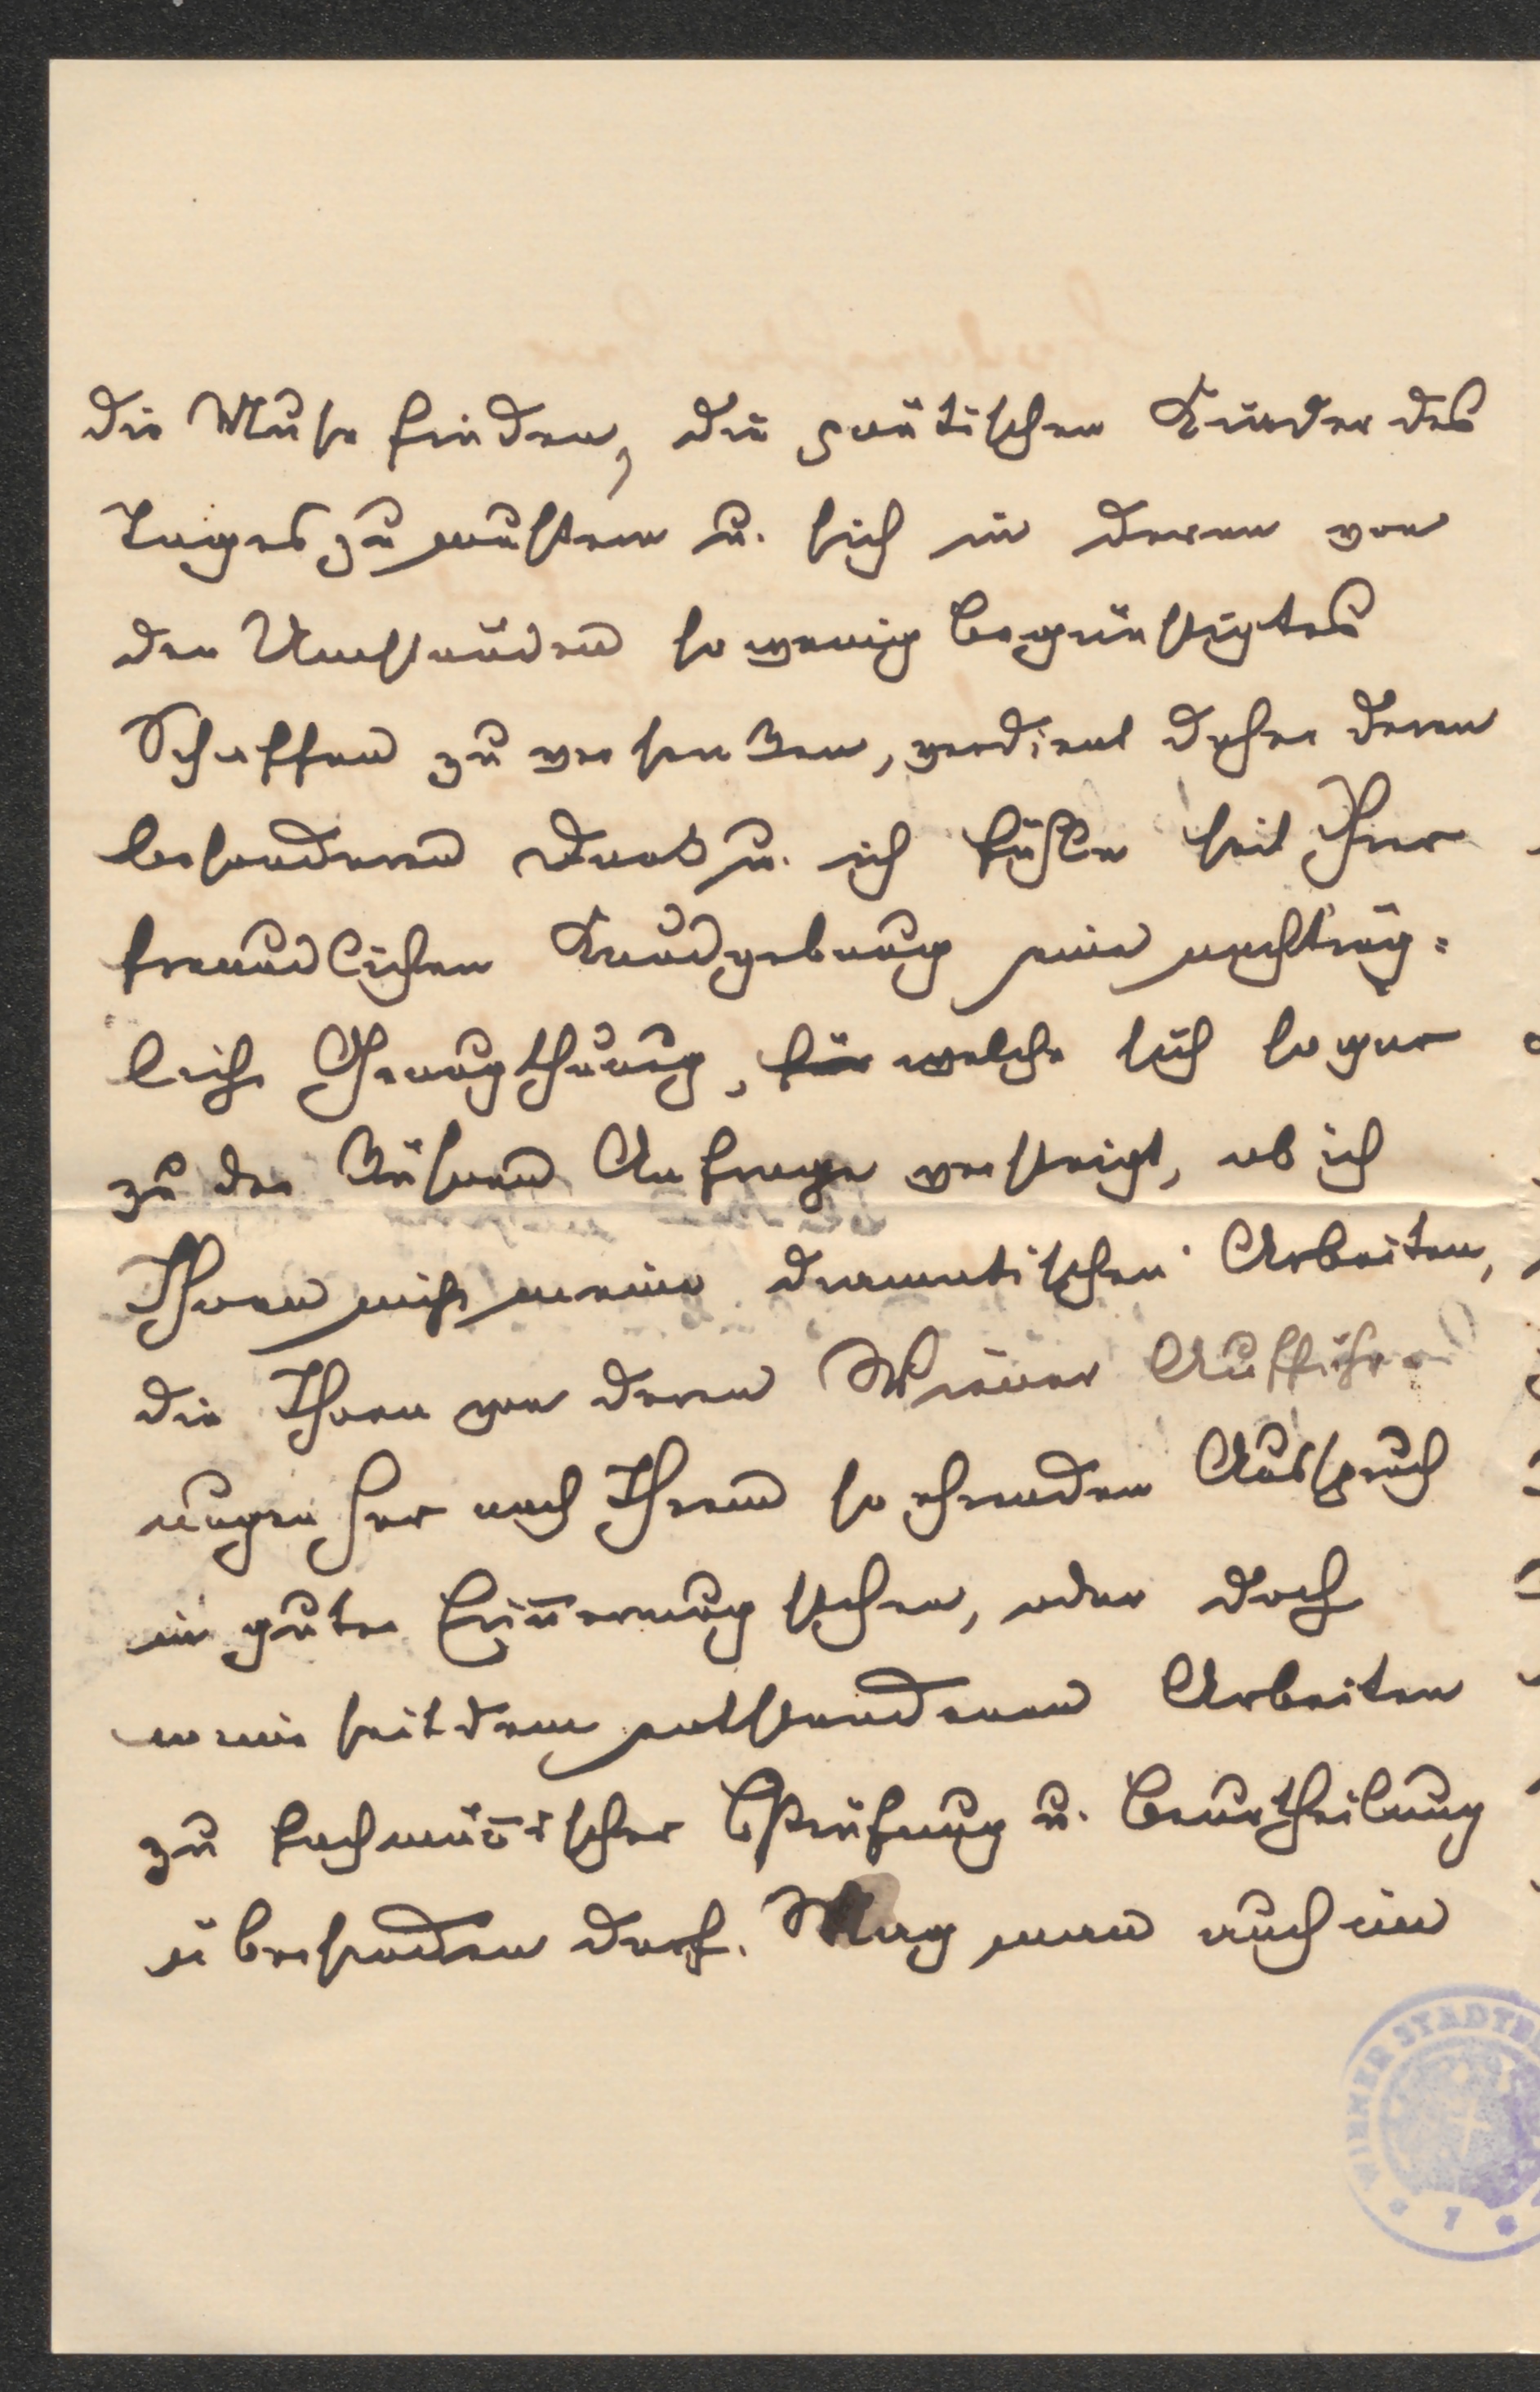 die Muse finden, die poetischen Kinder des
Tages zu mustern u. sich in deren von
den Umständen so wenig begünstigtes
Schaffen zu versenken, verdient daher deren
besonderen Dank u. ich fühle seit Ihrer
freundlichen Kundgebung eine nachträg-
liche Genugthuung, für welche sich sogar
zu der kühnen Anfrage versteigt, ob ich
Ihnen nicht meine dramatischen Arbeiten,
die Ihnen von deren Wiener Aufführ
ungen her nach Ihrem so ehrenden Ausspruch
in guter Erin̄erung stehen, oder doch
meine seitdem entstandenen Arbeiten
zu fachmän̄ischer Prüfung u. Beurtheilung
übersenden darf. Mag man auch in
WIENER STADTB